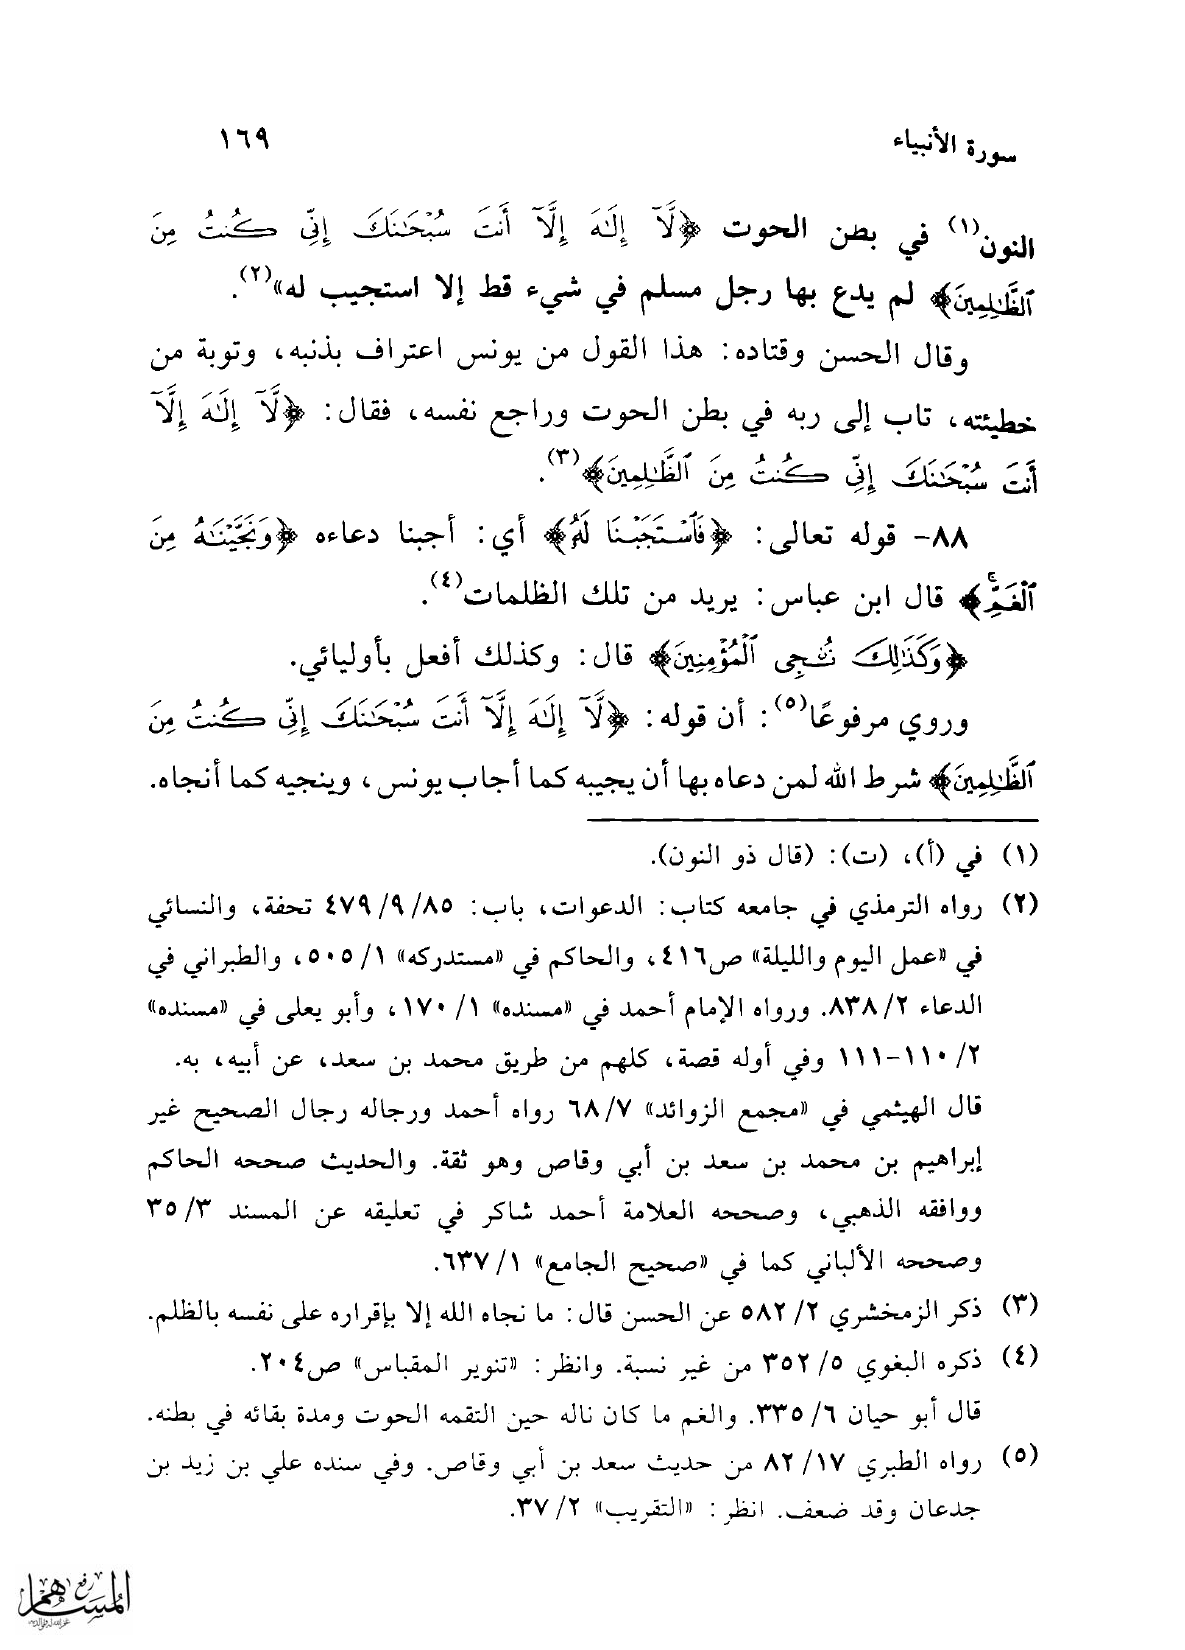 سورة الأنبياء
١٦٩
النون(١) في بطن الحوت ﴿لَّآ إِلَٰهَ إِلَّآ أَنتَ سُبْحَٰنَكَ إِنِّي كُنتُ مِنَ
ٱلظَّٰلِمِينَ﴾ لم يدع بها رجل مسلم في شيء قط إلا استجيب له»(٢).
وقال الحسن وقتاده: هذا القول من يونس اعتراف بذنبه، وتوبة من
خطيئته، تاب إلى ربه في بطن الحوت وراجع نفسه، فقال: ﴿لَّآ إِلَٰهَ إِلَّآ
أَنتَ سُبْحَٰنَكَ إِنِّي كُنتُ مِنَ ٱلظَّٰلِمِينَ﴾(٣).
٨٨- قوله تعالى: ﴿فَٱسْتَجَبْنَا لَهُۥ﴾ أي: أجبنا دعاءه ﴿وَنَجَّيْنَٰهُ مِنَ
ٱلْغَمِّۚ﴾ قال ابن عباس: يريد من تلك الظلمات(٤).
﴿وَكَذَٰلِكَ نُـۨجِى ٱلْمُؤْمِنِينَ﴾ قال: وكذلك أفعل بأوليائي.
وروي مرفوعًا(٥): أن قوله: ﴿لَّآ إِلَٰهَ إِلَّآ أَنتَ سُبْحَٰنَكَ إِنِّي كُنتُ مِنَ
ٱلظَّٰلِمِينَ﴾ شرط الله لمن دعاه بها أن يجيبه كما أجاب يونس، وينجيه كما أنجاه.
(١) في (أ)، (ت): (قال ذو النون).
(٢) رواه الترمذي في جامعه كتاب: الدعوات، باب: ٨٥/ ٩/ ٤٧٩ تحفة، والنسائي
في «عمل اليوم والليلة» ص٤١٦، والحاكم في «مستدركه» ١/ ٥٠٥، والطبراني في
الدعاء ٢/ ٨٣٨. ورواه الإمام أحمد في «مسنده» ١/ ١٧٠، وأبو يعلى في «مسنده»
٢/ ١١٠-١١١ وفي أوله قصة، كلهم من طريق محمد بن سعد، عن أبيه، به.
قال الهيثمي في «مجمع الزوائد» ٧/ ٦٨ رواه أحمد ورجاله رجال الصحيح غير
إبراهيم بن محمد بن سعد بن أبي وقاص وهو ثقة. والحديث صححه الحاكم
ووافقه الذهبي، وصححه العلامة أحمد شاكر في تعليقه عن المسند ٣/ ٣٥
وصححه الألباني كما في «صحيح الجامع» ١/ ٦٣٧.
(٣) ذكر الزمخشري ٢/ ٥٨٢ عن الحسن قال: ما نجاه الله إلا بإقراره على نفسه بالظلم.
(٤) ذكره البغوي ٥/ ٣٥٢ من غير نسبة. وانظر: «تنوير المقباس» ص٢٠٤.
قال أبو حيان ٦/ ٣٣٥. والغم ما كان ناله حين التقمه الحوت ومدة بقائه في بطنه.
(٥) رواه الطبري ١٧/ ٨٢ من حديث سعد بن أبي وقاص. وفي سنده علي بن زيد بن
جدعان وقد ضعف. انظر: «التقريب» ٢/ ٣٧.